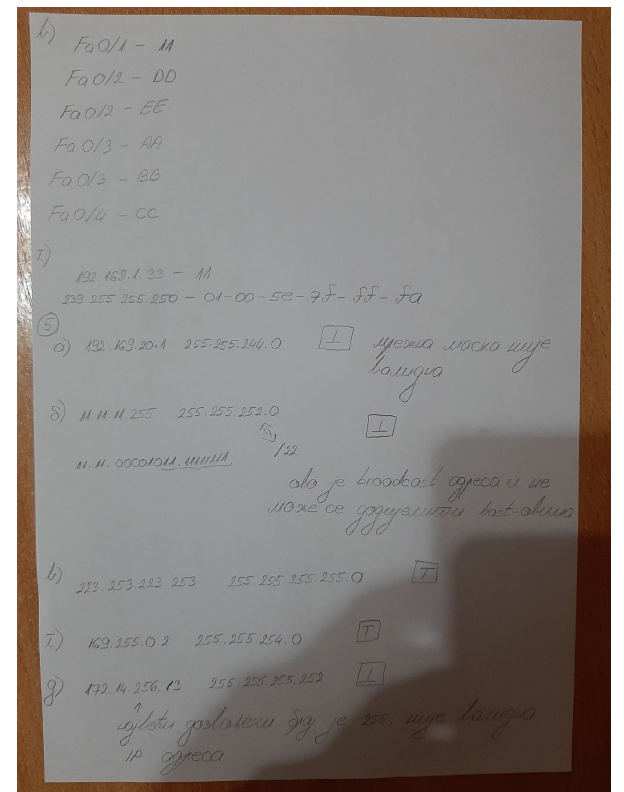 в)
Fa0/1 - 11
Fa0/2 - DD
Fa0/2 - EE
Fa0/3 - AA
Fa0/3 - BB
Fa0/4 - CC
г)
192.168.1.33 - 11
239.255.255.250 - 01-00-5e-7f-ff-fa
5
а) 192.169.20.1 255.255.244.0 ⊥ мрежна маска није
валидна
б) 11.11.11.255 255.255.252.0 ⊥
/22
11.11.00001011.11111111
ово је broadcast адреса и не
може се додијелити host-овима
в) 223.253.223.253 255.255.255.255.0 T
г) 169.255.0.2 255.255.254.0 T
д) 172.14.256.13 255.255.255.252 ⊥
↑
највећи дозвољени број је 255, није валидна
IP адреса